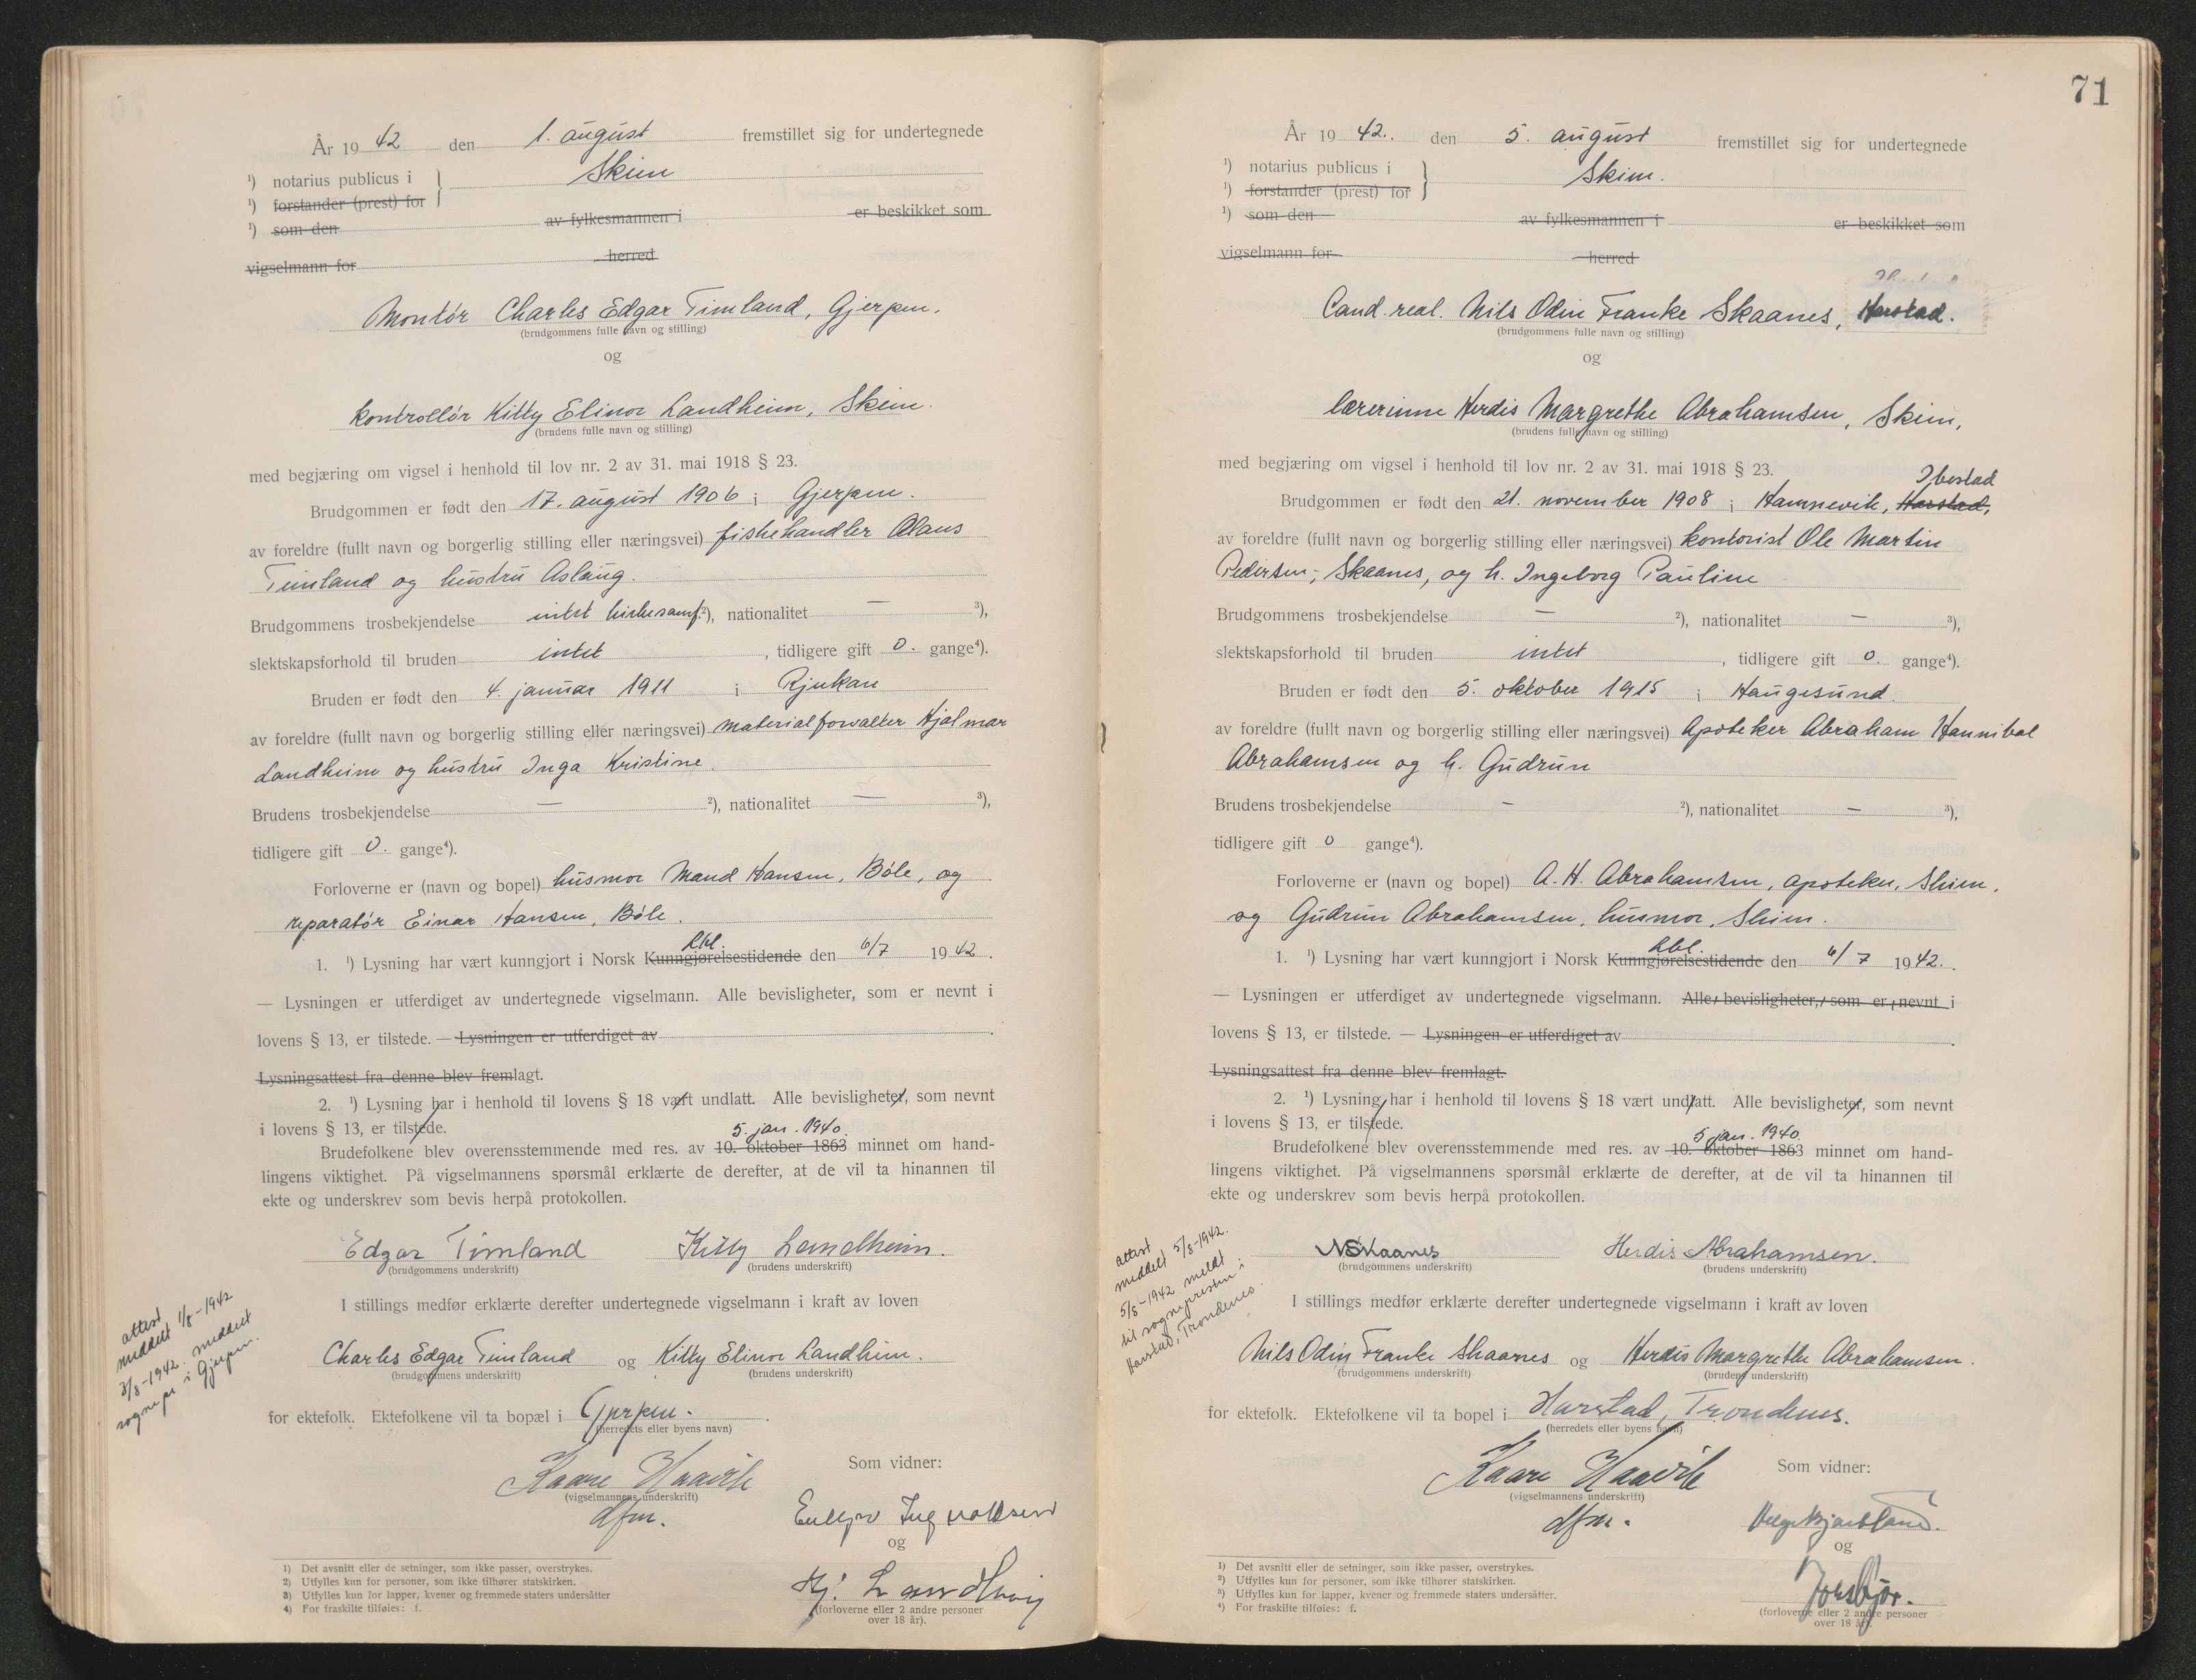 År 19 42 den 1. august fremstillet sig for undertegnede
¹) notarius publicus i Skien
¹) forstander (prest) for
¹) som den av fylkesmannen i er beskikket som
vigselmann for herred
Montör Charles Edgar Timland, Gjerpen.
(brudgommens fulle navn og stilling)
og
kontrollör Kitty Elinor Landheim, Skien.
(brudens fulle navn og stilling)
med begjæring om vigsel i henhold til lov nr. 2 av 31. mai 1918 § 23.
Brudgommen er født den 17. august 1906 i Gjerpen.
av foreldre (fullt navn og borgerlig stilling eller næringsvei) fiskehandler Olaus
Timland og hustru Aslaug.
Brudgommens trosbekjendelse intet kirkesamf. ²), nationalitet — ³),
slektskapsforhold til bruden intet, tidligere gift 0. gange⁴).
Bruden er født den 4. januar 1911 i Rjukan
av foreldre (fullt navn og borgerlig stilling eller næringsvei) materialforvalter Hjalmar
Landheim og hustru Inga Kristine.
Brudens trosbekjendelse — ²), nationalitet — ³),
tidligere gift 0. gange⁴).
Forloverne er (navn og bopel) husmor Maud Hansen, Böle, og
reparatör Einar Hansen, Böle.
lbl.
1. ¹) Lysning har vært kunngjort i Norsk Kunngjørelsestidende den 6/7 19 42.
— Lysningen er utferdiget av undertegnede vigselmann. Alle bevisligheter, som er nevnt i
lovens § 13, er tilstede. — Lysningen er utferdiget av
Lysningsattest fra denne blev fremlagt.
2. ¹) Lysning har i henhold til lovens § 18 vært undlatt. Alle bevisligheter, som nevnt
i lovens § 13, er tilstede.
5. jan. 1940.
Brudefolkene blev overensstemmende med res. av 10. oktober 1863 minnet om hand-
lingens viktighet. På vigselmannens spørsmål erklærte de derefter, at de vil ta hinannen til
ekte og underskrev som bevis herpå protokollen.
Edgar Timland Kitty Landheim.
(brudgommens underskrift) (brudens underskrift)
I stillings medfør erklærte derefter undertegnede vigselmann i kraft av loven
attest
meddelt 1/8-1942
3/8-1942 meddelt
sognepr. i Gjerpen.
Charles Edgar Timland og Kitty Elinor Landheim.
(brudgommens underskrift) (brudens underskrift)
for ektefolk. Ektefolkene vil ta bopæl i Gjerpen.
(herredets eller byens navn)
Kaare Haavik
(vigselmannens underskrift)
dfm.
Som vidner:
og
(forloverne eller 2 andre personer
over 18 år).
1) Det avsnitt eller de setninger, som ikke passer, overstrykes.
2) Utfylles kun for personer, som ikke tilhører statskirken.
3) Utfylles kun for lapper, kvener og fremmede staters undersåtter
4) For fraskilte tilføies: f.
71
År 19 42. den 5. august fremstillet sig for undertegnede
¹) notarius publicus i Skien.
¹) forstander (prest) for
¹) som den av fylkesmannen i er beskikket som
vigselmann for herred
Cand. real. Nils Odin Franke Skaanes, Harstad.
(brudgommens fulle navn og stilling)
og
lærerinne Herdis Margrethe Abrahamsen, Skien,
(brudens fulle navn og stilling)
med begjæring om vigsel i henhold til lov nr. 2 av 31. mai 1918 § 23.
Ibestad
Brudgommen er født den 21. november 1908 i Hamnevik, Harstad,
av foreldre (fullt navn og borgerlig stilling eller næringsvei) kontorist Ole Martin
Pedersen, Skaanes, og h. Ingeborg Pauline
Brudgommens trosbekjendelse — ²), nationalitet — ³),
slektskapsforhold til bruden intet, tidligere gift 0. gange⁴).
Bruden er født den 5. oktober 1915 i Haugesund.
av foreldre (fullt navn og borgerlig stilling eller næringsvei) Apoteker Abraham Hannibal
Abrahamsen og h. Gudrun
Brudens trosbekjendelse — ²), nationalitet — ³),
tidligere gift 0 gange⁴).
Forloverne er (navn og bopel) A. H. Abrahamsen, apoteker, Skien,
og Gudrun Abrahamsen, husmor, Skien.
lbl.
1. ¹) Lysning har vært kunngjort i Norsk Kunngjørelsestidende den 6/7 19 42.
— Lysningen er utferdiget av undertegnede vigselmann. Alle bevisligheter, som er nevnt i
lovens § 13, er tilstede. — Lysningen er utferdiget av
Lysningsattest fra denne blev fremlagt.
2. ¹) Lysning har i henhold til lovens § 18 vært undlatt. Alle bevisligheter, som nevnt
i lovens § 13, er tilstede.
5 jan. 1940.
Brudefolkene blev overensstemmende med res. av 10. oktober 1863 minnet om hand-
lingens viktighet. På vigselmannens spørsmål erklærte de derefter, at de vil ta hinannen til
ekte og underskrev som bevis herpå protokollen.
attest
meddelt 5/8-1942.
5/8-1942 meldt
til sognepresten i
Harstad, Trondenes.
NSkaanes Herdis Abrahamsen.
(brudgommens underskrift) (brudens underskrift)
I stillings medfør erklærte derefter undertegnede vigselmann i kraft av loven
Nils Odin Franke Skaanes og Herdis Margrethe Abrahamsen.
(brudgommens underskrift) (brudens underskrift)
for ektefolk. Ektefolkene vil ta bopel i Harstad, Trondenes.
(herredets eller byens navn)
Kaare Haavik
(vigselmannens underskrift)
dfm.
Som vidner:
og
(forloverne eller 2 andre personer
over 18 år).
1) Det avsnitt eller de setninger, som ikke passer, overstrykes.
2) Utfylles kun for personer, som ikke tilhører statskirken.
3) Utfylles kun for lapper, kvener og fremmede staters undersåtter.
4) For fraskilte tilføies: f.